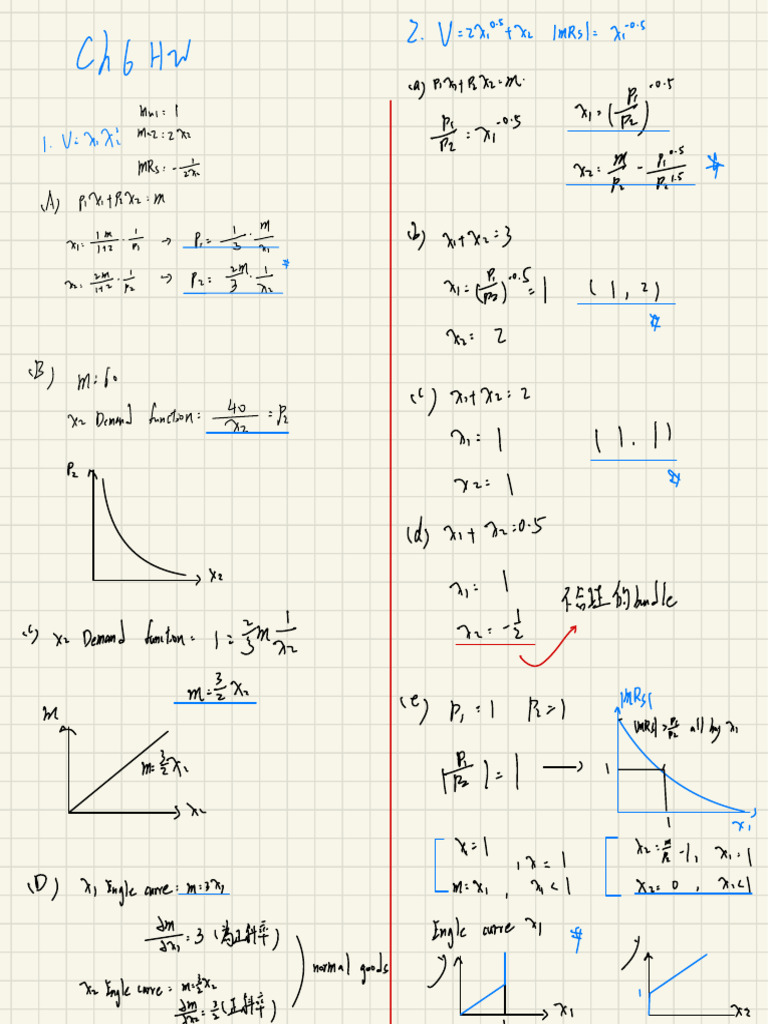 Ch 6 HW
1. U = x₁x₂²
Mu1 = 1
Mu2 = 2x₂
MRS = -1/(2x₂)
A) P₁x₁ + P₂x₂ = m
x₁ = 1m/(1+2) · 1/P₁ → P₁ = 1/3 · m/x₁
x₂ = 2m/(1+2) · 1/P₂ → P₂ = 2m/3 · 1/x₂
(B) m = 60
x₂ Demand function: 40/x₂ = P₂
P₂
x₂
(c) x₂ Demand function: 1 = 2/3 m 1/x₂
m = 3/2 x₂
m
m = 3/2 x₂
x₂
(D) x₁ Engle curve: m = 3x₁
∂m/∂x₁ = 3 (為正斜率)
x₂ Engle curve: m = 3/2 x₂
∂m/∂x₂ = 3/2 (正斜率)
normal goods
2. U = 2x₁^0.5 + x₂ |MRS| = x₁^-0.5
(a) P₁x₁ + P₂x₂ = m
P₁/P₂ = x₁^-0.5
x₁ = (P₁/P₂)^-0.5
x₂ = m/P₂ - P₁^0.5/P₂^1.5
(b) x₁ + x₂ = 3
x₁ = (P₁/P₂)^-0.5 = 1 (1, 2)
x₂ = 2
(c) x₁ + x₂ = 2
x₁ = 1 (1, 1)
x₂ = 1
(d) x₁ + x₂ = 0.5
x₁ = 1
x₂ = -1/2
的bundle
(e) P₁ = 1 P₂ = 1
|P₁/P₂| = 1 →
|MRS|
|MRS| > P₁/P₂ all buy x₁
1
1
x₁
x₁ = 1 , x = 1
m = x₁ , x₁ < 1
x₂ = m/P₂ - 1, x₁ = 1
x₂ = 0 , x₁ < 1
Engle curve x₁
y
x₁
1
y
1
x₂